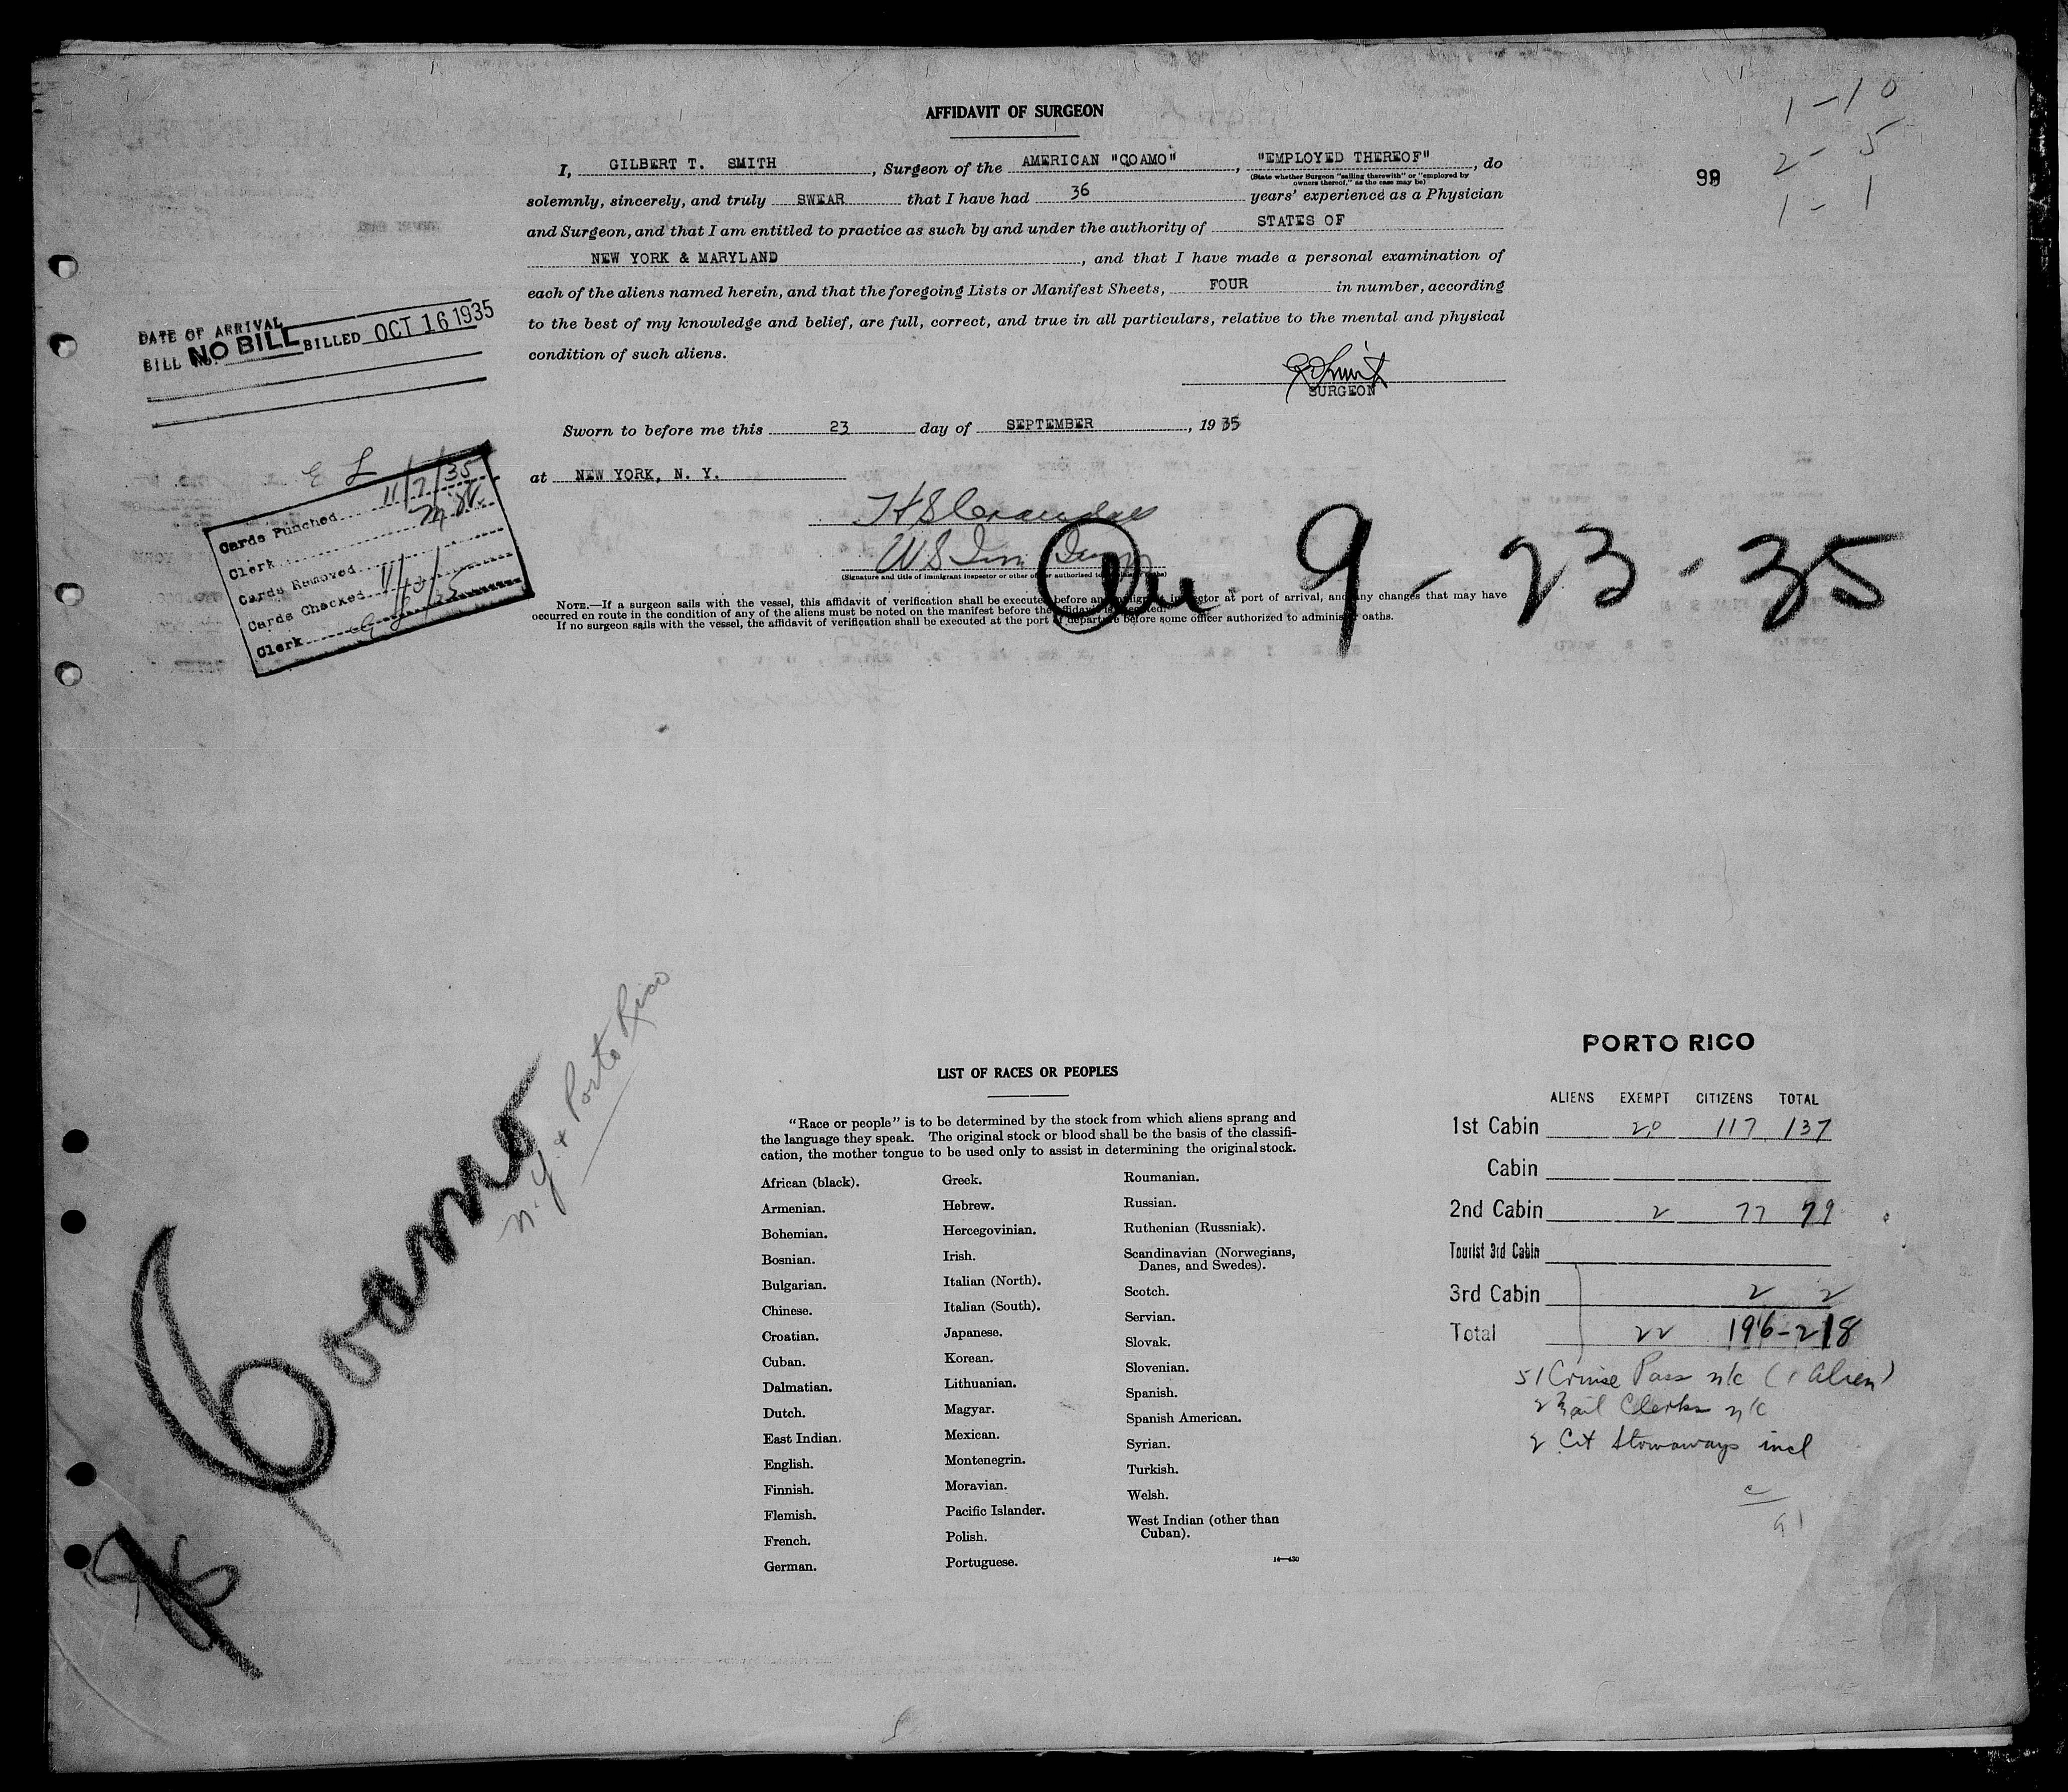 AFFIDAVIT OF SURGEON
1 - 10
2 - 5
1 - 1
99
I, GILBERT T. SMITH, Surgeon of the AMERICAN "COAMO", "EMPLOYED THEREOF", do
(State whether Surgeon "sailing therewith" or "employed by
owners thereof," as the case may be)
solemnly, sincerely, and truly SWEAR that I have had 36 years' experience as a Physician
and Surgeon, and that I am entitled to practice as such by and under the authority of STATES OF
NEW YORK & MARYLAND, and that I have made a personal examination of
each of the aliens named herein, and that the foregoing Lists or Manifest Sheets, FOUR in number, according
to the best of my knowledge and belief, are full, correct, and true in all particulars, relative to the mental and physical
condition of such aliens.
SURGEON
DATE OF ARRIVAL
BILL No. NO BILL BILLED OCT 16 1935
Sworn to before me this 23 day of SEPTEMBER, 1935
at NEW YORK, N. Y.
Cards Punched 11/7/35
Clerk
Cards Removed
Cards Checked
Clerk
9 - 23 - 35
(Signature and title of immigrant inspector or other officer authorized to administer oaths)
NOTE.—If a surgeon sails with the vessel, this affidavit of verification shall be executed before an immigrant inspector at port of arrival, and any changes that may have
occurred en route in the condition of any of the aliens must be noted on the manifest before the affidavit is executed.
If no surgeon sails with the vessel, the affidavit of verification shall be executed at the port of departure before some officer authorized to administer oaths.
Coamo
N.Y. & Porto Rico
LIST OF RACES OR PEOPLES
"Race or people" is to be determined by the stock from which aliens sprang and
the language they speak. The original stock or blood shall be the basis of the classifi-
cation, the mother tongue to be used only to assist in determining the original stock.
African (black).
Armenian.
Bohemian.
Bosnian.
Bulgarian.
Chinese.
Croatian.
Cuban.
Dalmatian.
Dutch.
East Indian.
English.
Finnish.
Flemish.
French.
German.
Greek.
Hebrew.
Hercegovinian.
Irish.
Italian (North).
Italian (South).
Japanese.
Korean.
Lithuanian.
Magyar.
Mexican.
Montenegrin.
Moravian.
Pacific Islander.
Polish.
Portuguese.
Roumanian.
Russian.
Ruthenian (Russniak).
Scandinavian (Norwegians,
Danes, and Swedes).
Scotch.
Servian.
Slovak.
Slovenian.
Spanish.
Spanish American.
Syrian.
Turkish.
Welsh.
West Indian (other than
Cuban).
14—430
PORTO RICO
ALIENS EXEMPT CITIZENS TOTAL
1st Cabin 20 117 137
Cabin
2nd Cabin 2 77 79
Tourist 3rd Cabin
3rd Cabin 2 2
Total 22 196 - 218
51 Cruise Pass n/c (1 Alien)
2 Mail Clerks n/c
2 Cit Stowaways incl